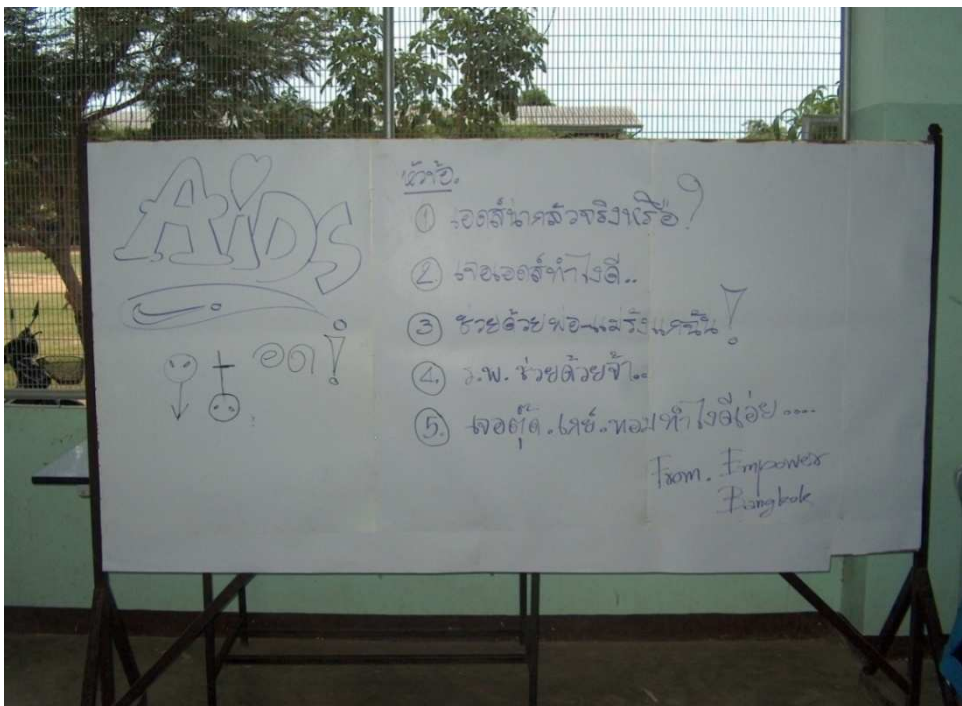 AiDS
อด!
หัวข้อ.
① เอดส์น่ากลัวจริงหรือ?
② เจอเอดส์ทำไงดี..
③ ช่วยด้วยพ่อ-แม่รังแกฉัน!
④ ร.พ. ช่วยด้วยจ้า..
⑤ เจอตุ๊ด.เกย์.ทอมทำไงดีเอ่ย....
From. Empower
Bangkok